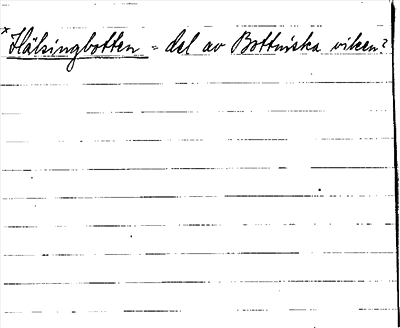 *Hälsingbotten = del av Bottniska viken?